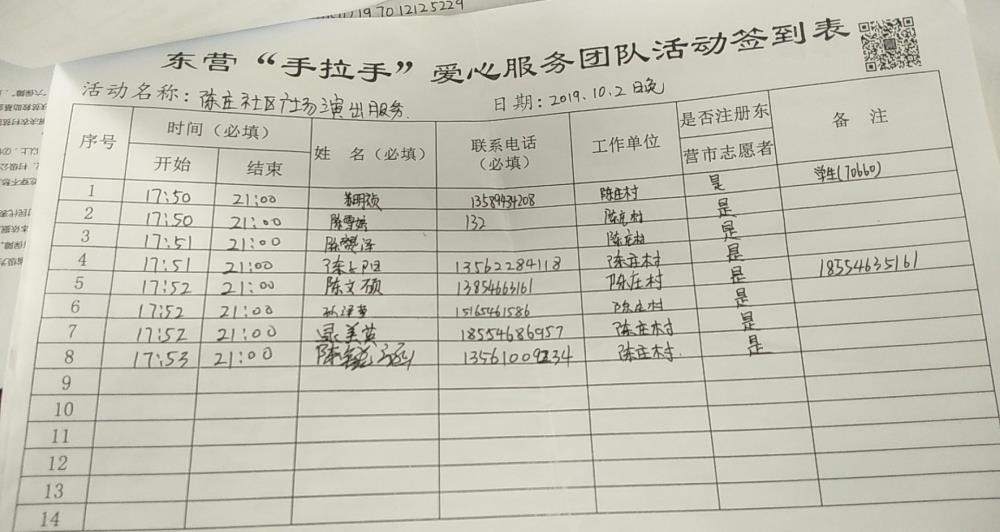 197012125229
东营“手拉手”爱心服务团队活动签到表
活动名称：陈庄社区广场演出服务. 日期：2019.10.2日晚
序号 时间（必填） 姓 名（必填） 联系电话（必填） 工作单位 是否注册东营市志愿者 备 注
开始 结束
1 17:50 21:00 13589434208 陈庄村 是 学生(70660)
2 17:50 21:00 陈雪婷 132 陈庄村 是
3 17:51 21:00 陈 泽 陈庄村 是
4 17:51 21:00 13562284118 陈庄村 是
5 17:52 21:00 陈文硕 13854663161 陈庄村 是 18554635161
6 17:52 21:00 15165461586 陈庄村 是
7 17:52 21:00 美英 18554686957 陈庄村 是
8 17:53 21:00 陈 13561009234 陈庄村. 是
9
10
11
12
13
14